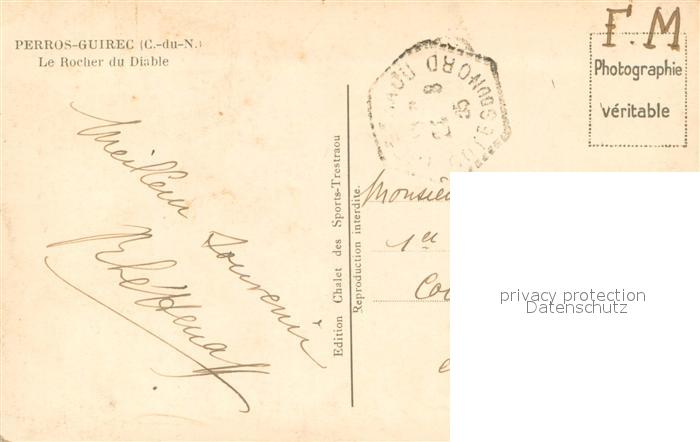 PERROS-GUIREC (C.-du-N.)
Le Rocher du Diable
Meilleur
souvenir
Edition Chalet des Sports-Trestraou
Reproduction interdite.
F.M
Photographie
véritable
Monsieu
1er
Co
privacy protection
Datenschutz